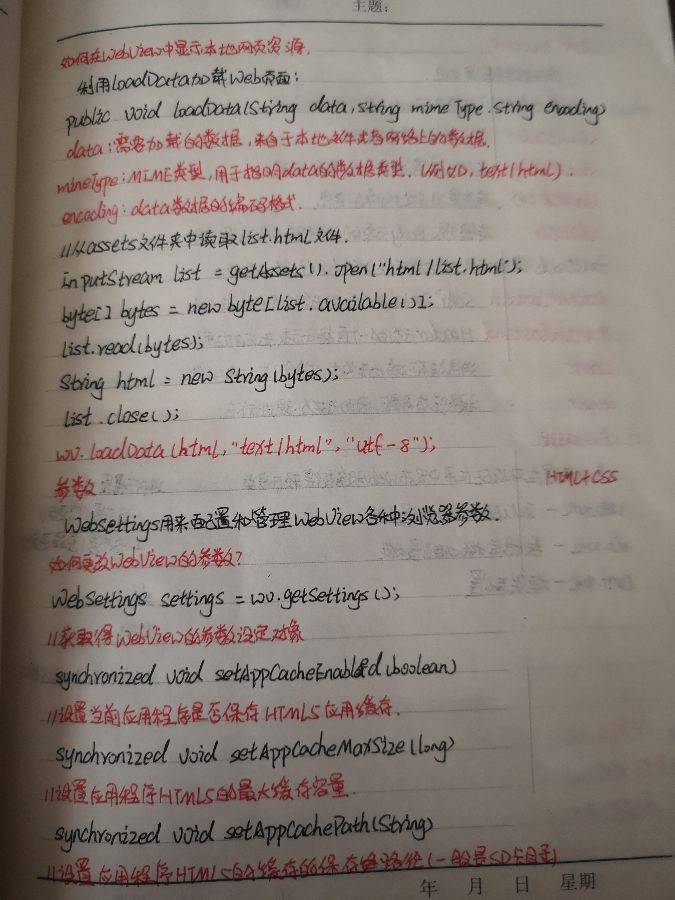 主题:
如何在WebView中显示本地网页资源.
利用loadData加载Web页面:
public void loadData(String data,string mime Type.String encoding)
data:需要加载的数据,来自于本地文件或者网络上的数据.
mineType:MIME类型,用于指明data的数据类型.
text/html).
encoding:data数据的编码格式.
//从assets文件夹中读取list.html文件.
InputStream list = getAssets().open("html/list.html");
byte[] bytes = new byte[list.available()];
list.read(bytes);
String html = new String(bytes);
list.close();
wv.loadData(html,"text/html","utf-8");
参数 HTML+CSS
WebSettings用来配置和管理WebView各种浏览器参数.
如何更改WebView的参数?
WebSettings settings = wv.getSettings();
//获取得WebView的参数设定对象
synchronized void setAppCacheEnabled(boolean)
//设置当前应用程序是否保存HTML5应用缓存.
synchronized void setAppCacheMaxSize(long)
//设置应用程序HTML5的最大缓存容量.
synchronized void setAppCachePath(String)
//设置应用程序HTML5的缓存的保存路径(一般是SD卡目录)
年 月 日 星期